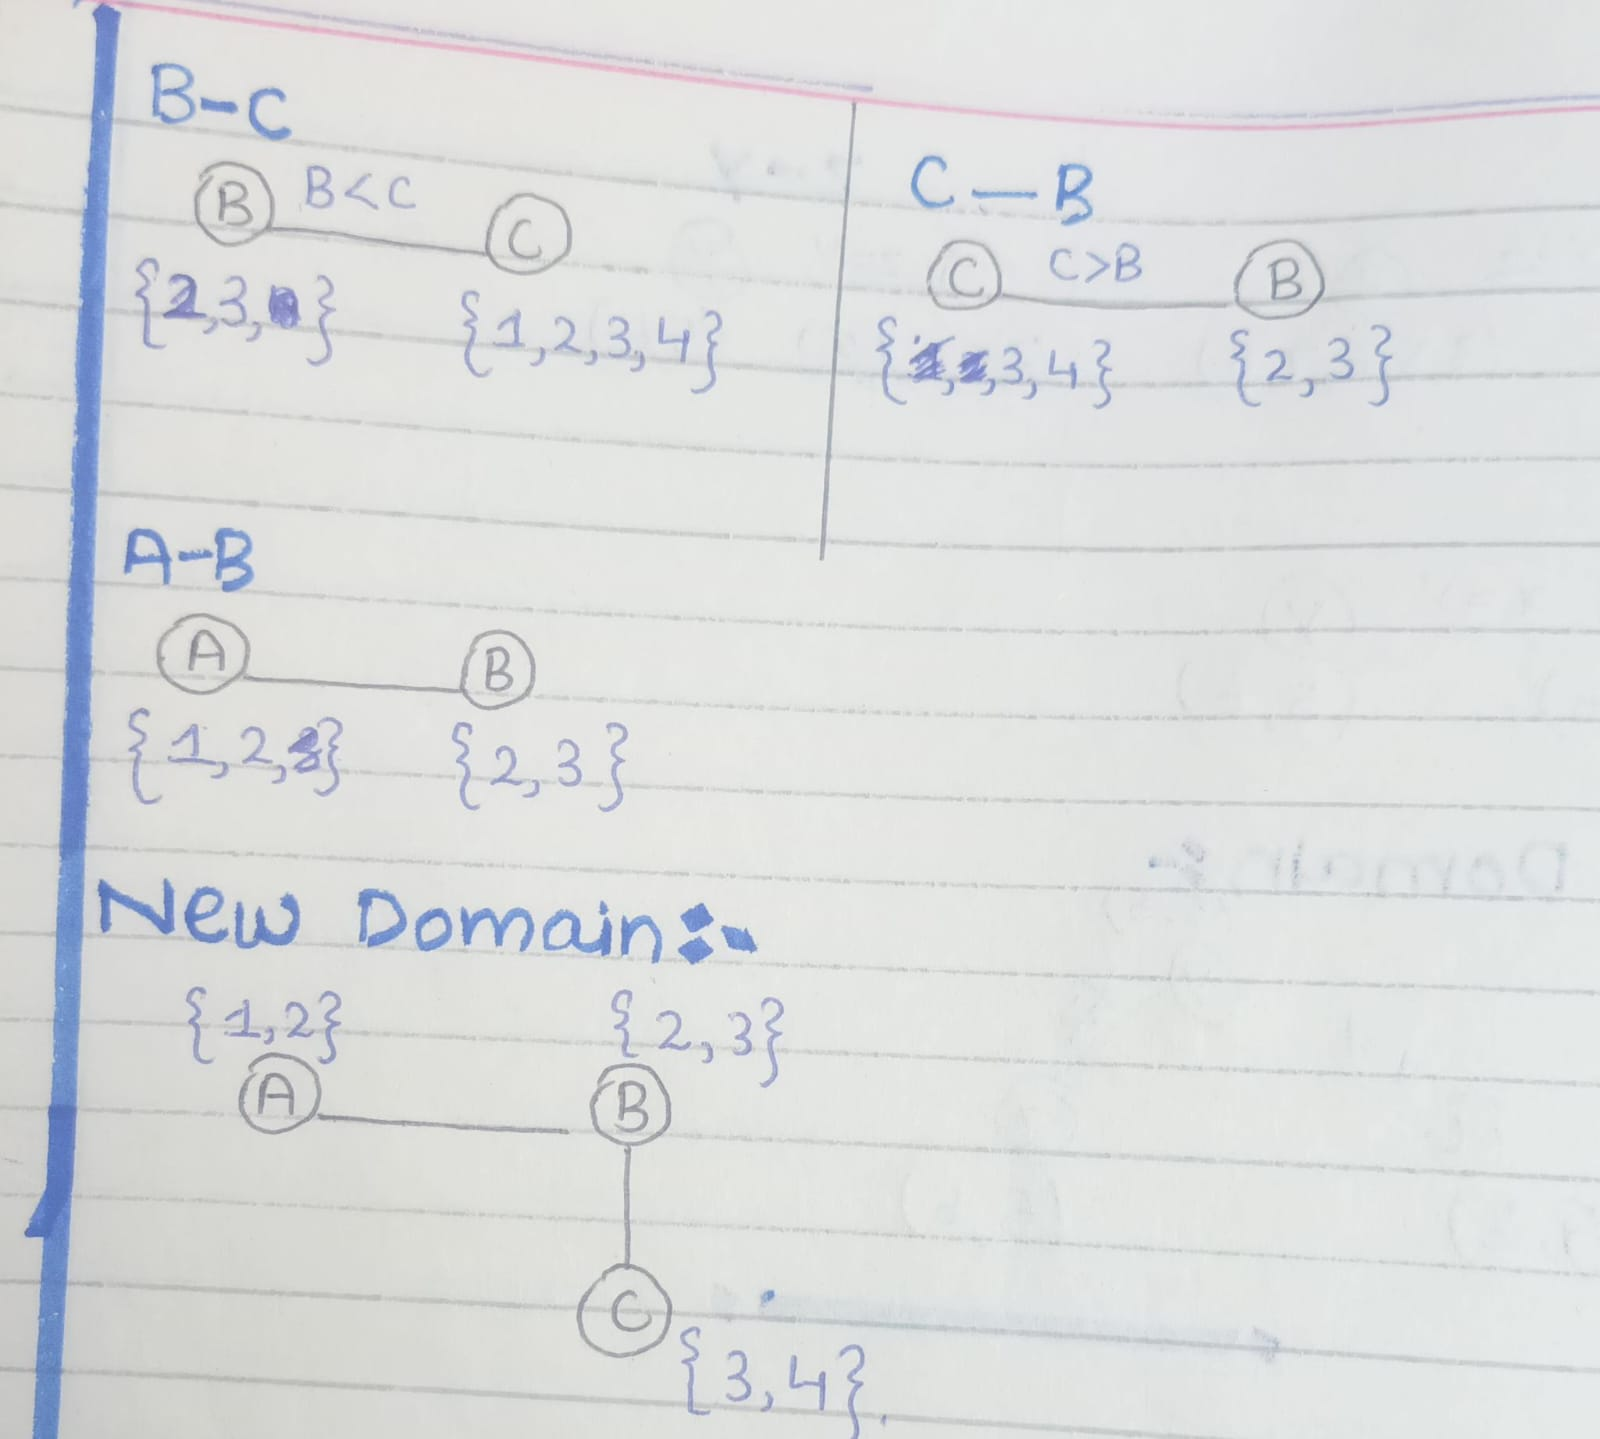 B-C
B B<C C
{2,3, } {1,2,3,4}
C-B
C C>B B
{1,2,3,4} {2,3}
A-B
A B
{1,2,3} {2,3}
New Domain:-
{1,2} {2,3}
A B
C
{3,4}.